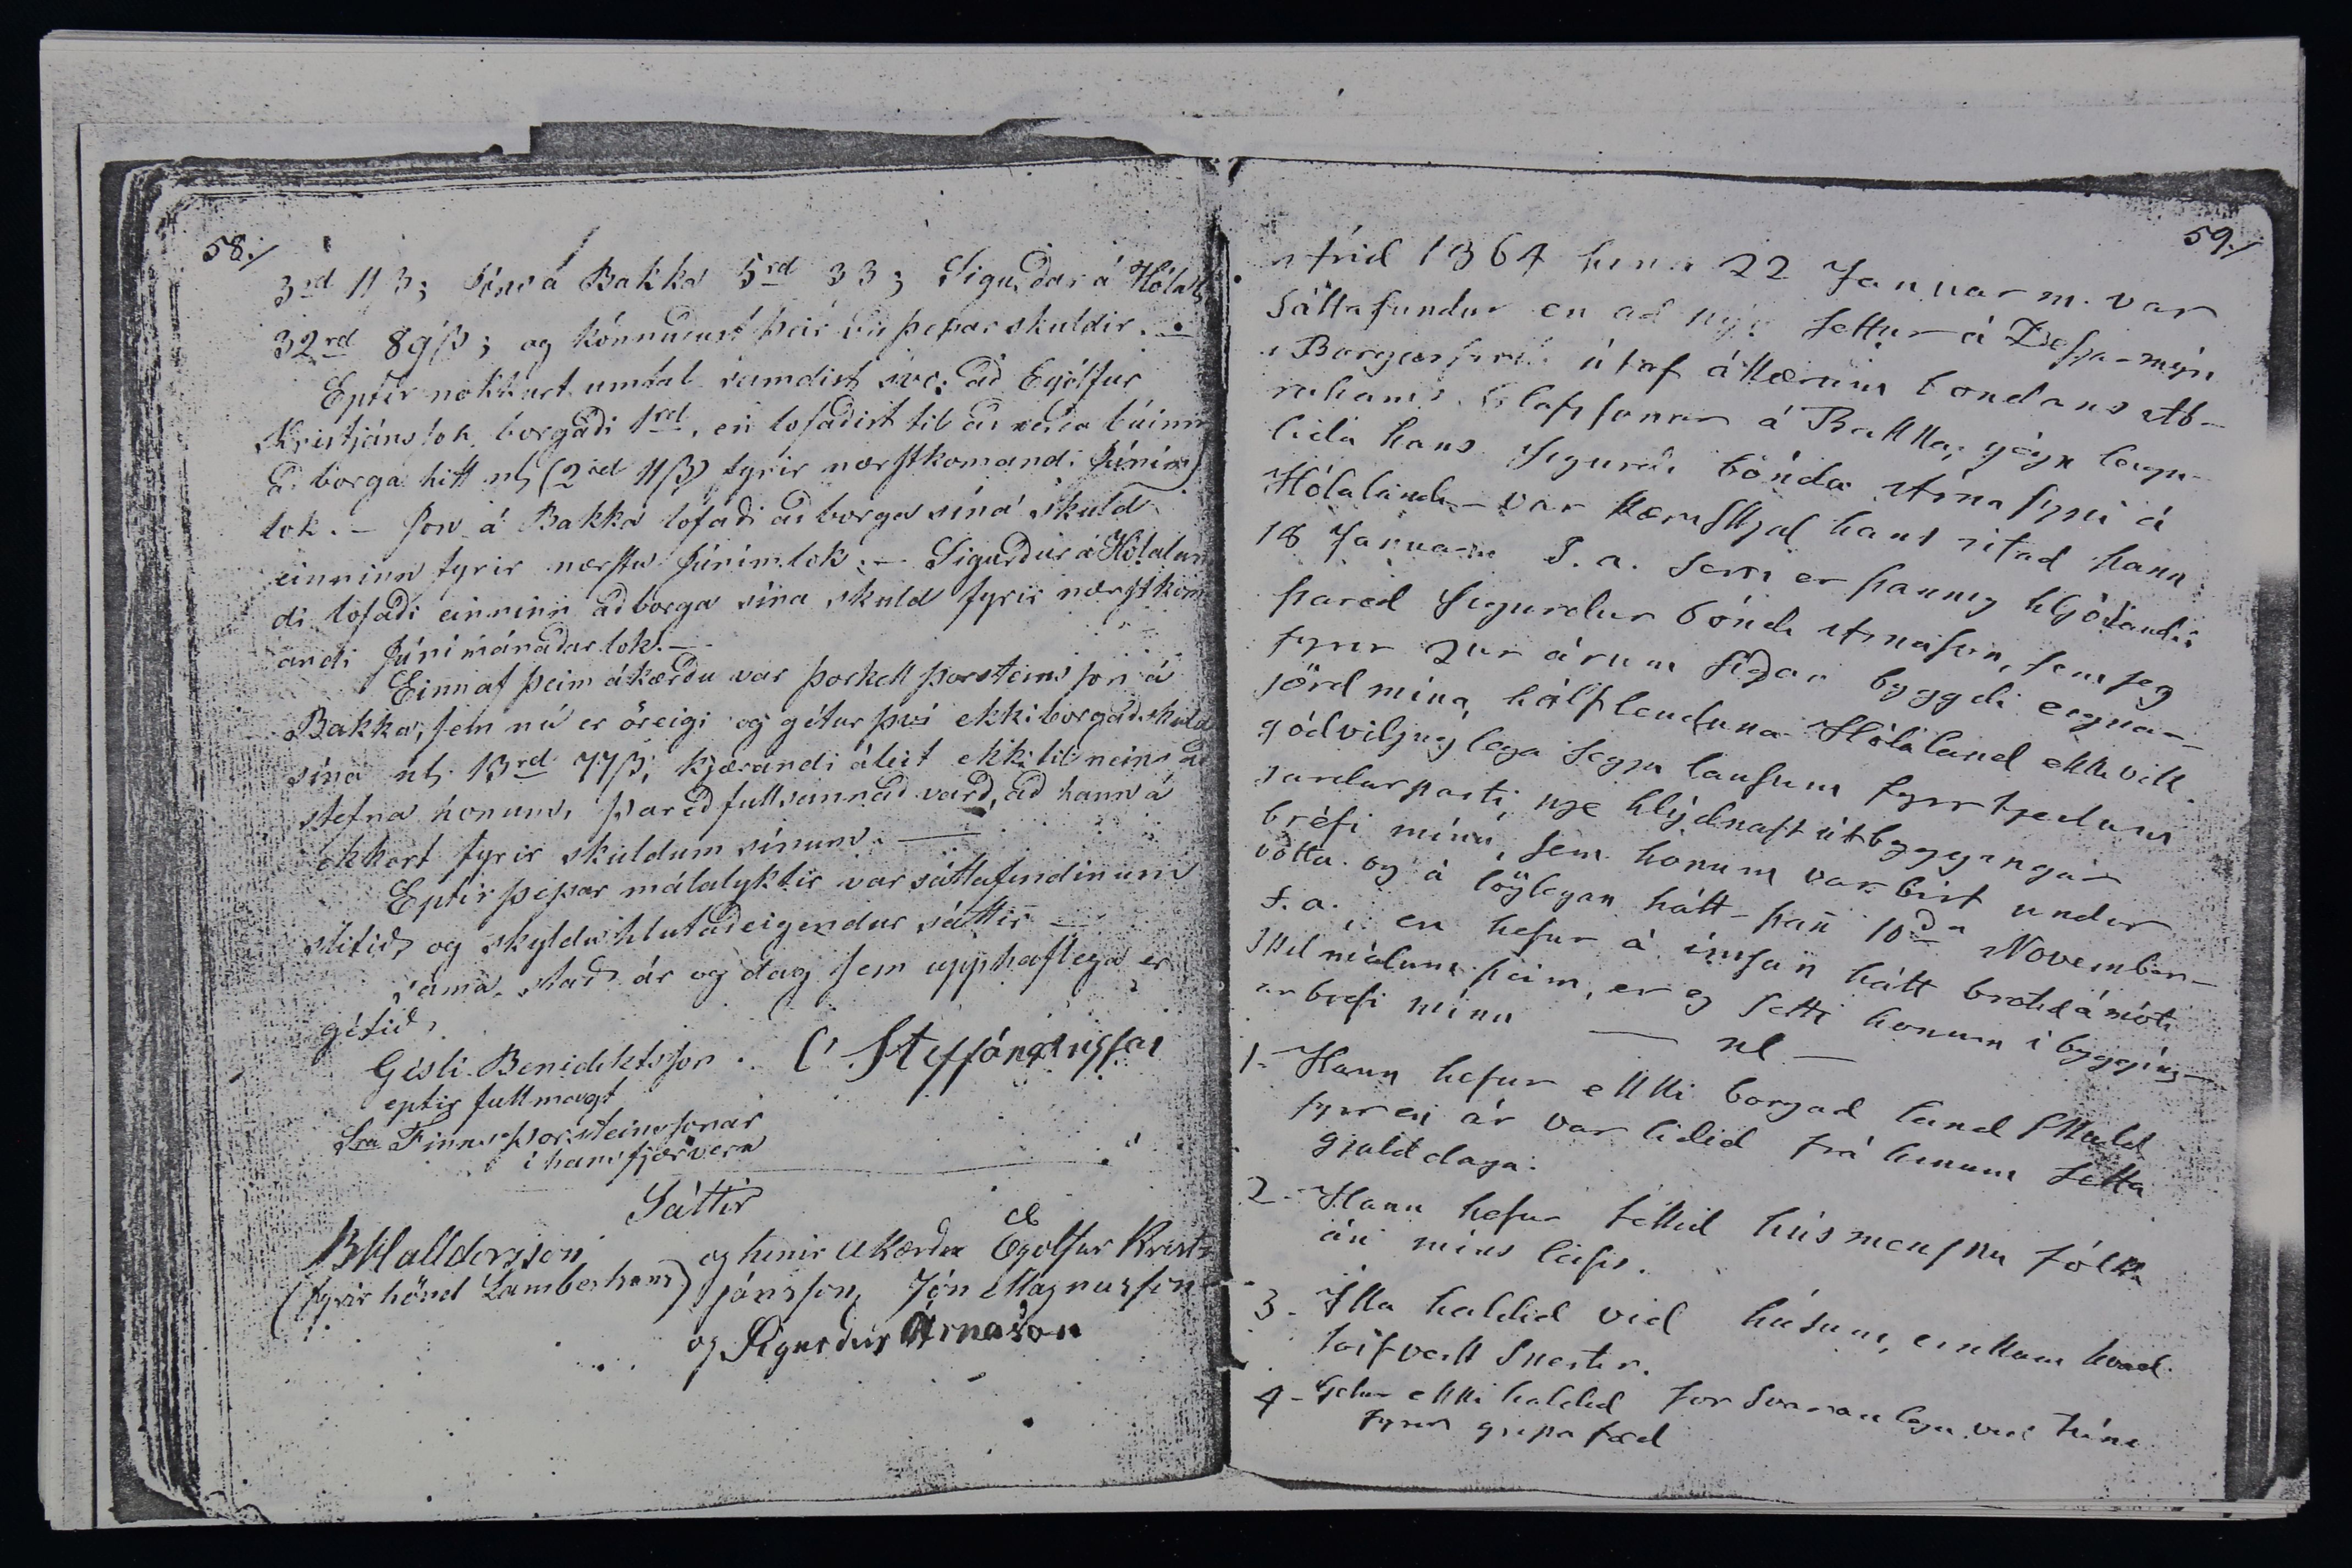 58./
3rd 11 ß; Jóns á Bakka 5rd 33; Sigurðar á Hólal.
32rd 89ß; og könnuðust þeir við þessar skuldir. —
Eptir nokkurt umtal samdist svo: að Eyjólfur
Kristjánsson borgaði 1rd, en lofaðist til að verða búinn
að borga hitt nl. (2rd 11ß) fyrir næstkomandi Júním
lok. — Jón á Bakka lofaði að borga sína skuld
einninn fyrir næstu Júním. lok. — Sigurður á Hólalan
di lofaði einninn að borga sína skuld fyrir næstkom
andi Júnímánaðar lok. —
Einn af þeim ákærðu var Þorkell Þorsteinsson á
Bakka, sem nú er öreigi og gétur því ekki borgað skuld
sína nl. 13rd 77ß; kjærandi áleit ekki til neins að
stefna honum, þar eð fullsannað varð, að hann á
ekkert fyrir skuldum sínum. —
Eptir þessar málalyktir var sáttafundinum
slitið og skyldu hlutaðeigendur sáttir —
sama stað ár og dag sem upphaflega er
gétið.
Gísli Benidiktsson . C Steffánsson
eptir fullmagt
Sra Finns Þorsteinssonar
í hans fjærveru
Sáttir
BHalldorsson og hinir ákærðu Eyólfur Krist-
(fyrir hönd Lambertsens) jánsson, Jón Magnusson
og Sigurður Árnason
59./
Árið 1864 hinn 22 Januar m. var
sáttafundur en að nýu settur á Desja-mýri
í Borgarfirði útaf ákærum bóndans Ab-
rahams Olafssonar á Bakka, gégn leigu-
liða hans Sigurði bónda Árnasyni á
Hólalandi — var kæruskjal hans ritað þann
18 Januar s. a. sem er þannig hljóðandi:
þareð Sigurdur bóndi Arnason, sem jeg
fyrir 2ur árum síðan byggdi eigna-
jörð mína, hálflenduna Hólaland ekki vill
góðviljuglega segja lausum fyrrtjeðum
jarðarparti, nje hlýðnast útbyggingar
bréfi mínu, sem honum var birt undir
votta og á löglegan hátt þann 10da November
f. a. en hefur á imsan hátt brotið á móti
skilmálum þeim, er eg setti honum í bygging-
arbréfi mínu — nl —
1- Hann hefur ekki borgað landskuld
fyrr en ár var liðið frá hinum setta
gjalddaga.
2- Hann hefur tekið húsmensku fólk
án míns leifis.
3- Illa haldið við húsum, einkum hvað
torfverk snertir.
4- Gétur ekki haldið forsvaranlega við túni
fyrir gripafæð